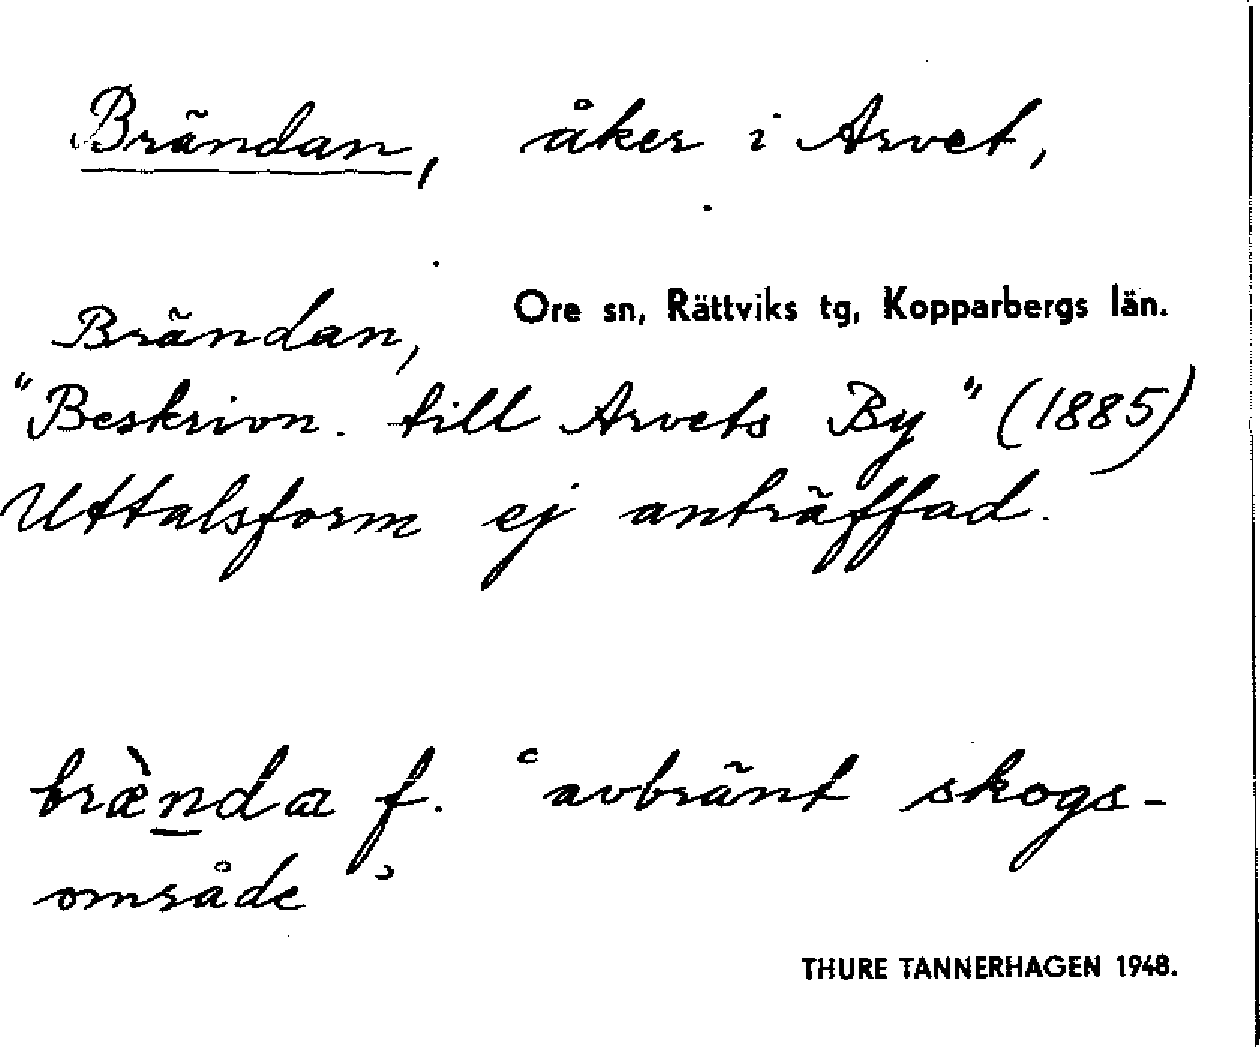 Brändan, åker i Arvet,
Ore sn, Rättviks tg, Kopparbergs län.
Brändan,
"Beskrivn. till Arvets By" (1885)
Uttalsform ej anträffad.
brὲnda f. ʿavbränt skogs-
område ʾ
THURE TANNERHAGEN 1948.